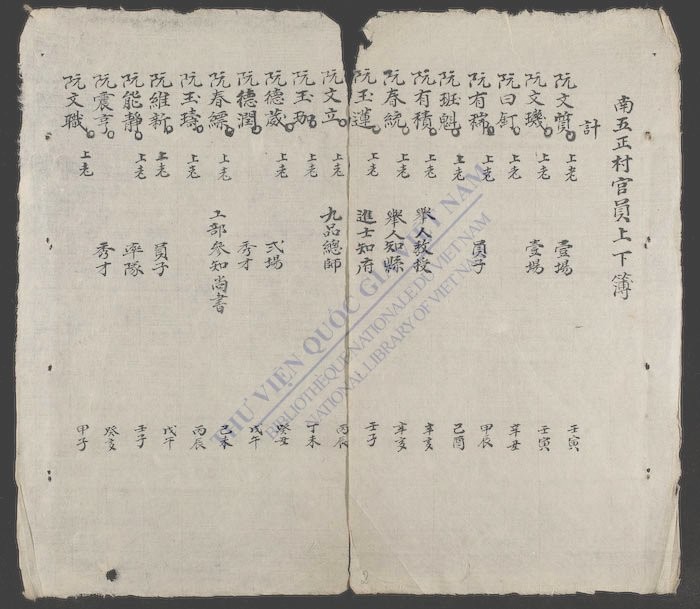 南五正村官員上下簿
計
阮文質 上老 壹場 壬寅
阮文璣 上老 壹場 壬寅
阮曰釘 上老 辛丑
阮有稱 上老 員子 甲辰
阮班魁 上老 己酉
阮有積 上老 舉人教授 辛亥
阮春統 上老 舉人知縣 辛亥
阮玉蓮 上老 進士知府 壬子
阮文立 上老 九品總師 丙辰
阮玉珈 上老 丁未
阮德葳 上老 弍場 癸丑
阮德潤 秀才 戊午
阮春縹 上老 工部參知尚書 己未
阮玉璹 上老 丙辰
阮維新 上老 員子 戊午
阮能靜 上老 率隊 壬子
阮震亨 秀才 癸亥
阮文職 上老 甲子
THƯ VIỆN QUỐC GIA VIỆT NAM
BIBLIOTHÈQUE NATIONALE DU VIETNAM
NATIONAL LIBRARY OF VIETNAM